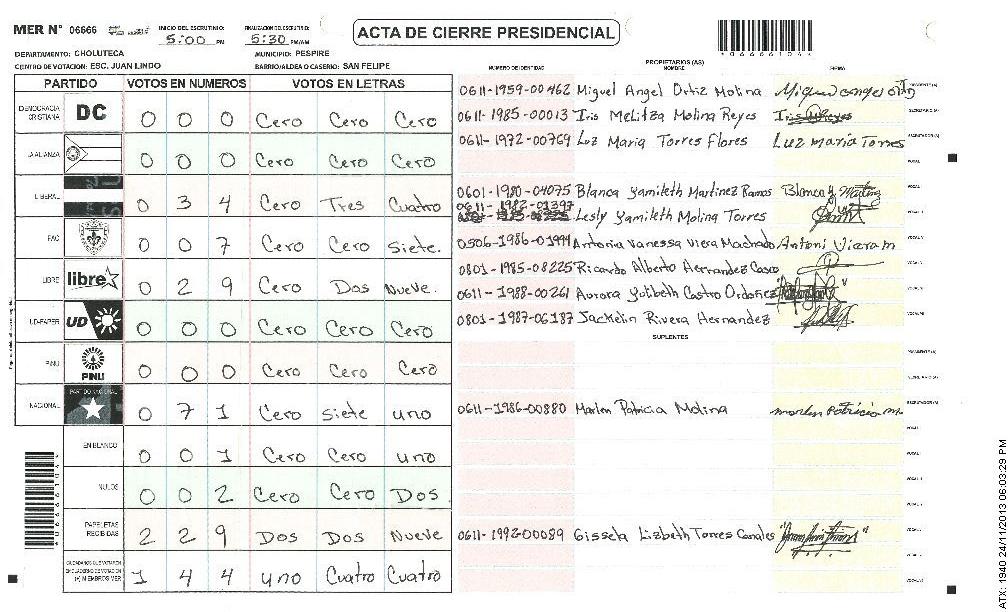 MER N° 06666
INICIO DEL ESCRUTINIO: 5:00 PM
FINALIZACION DEL ESCRUTINIO: 5:30 PM/AM
ACTA DE CIERRE PRESIDENCIAL
DEPARTAMENTO: CHOLUTECA
MUNICIPIO: PESPIRE
CENTRO DE VOTACION: ESC. JUAN LINDO
BARRIO/ALDEA O CASERIO: SAN FELIPE
PARTIDO VOTOS EN NUMEROS VOTOS EN LETRAS
DEMOCRACIA CRISTIANA DC 0 0 0 Cero Cero Cero
LA ALIANZA 0 0 0 Cero Cero Cero
LIBERAL 0 3 4 Cero Tres Cuatro
PAC 0 0 7 Cero Cero Siete.
LIBRE libre 0 2 9 Cero Dos Nueve.
UD-FAPER UD 0 0 0 Cero Cero Cero
PINU PINU 0 0 0 Cero Cero Cero
NACIONAL PARTIDO NACIONAL 0 7 1 Cero Siete uno
EN BLANCO 0 0 1 Cero Cero uno
NULOS 0 0 2 Cero Cero Dos.
PAPELETAS RECIBIDAS 2 2 9 Dos Dos Nueve
CIUDADANOS QUE VOTARON EN CUADERNO DE VOTACION (+) MIEMBROS MER 1 4 4 uno Cuatro Cuatro
PROPIETARIOS (AS)
NUMERO DE IDENTIDAD NOMBRE FIRMA
0611-1959-00462 Miguel Angel Ortiz Molina PRESIDENTE (A)
0611-1985-00013 Iris Melitza Molina Reyes SECRETARIO (A)
0611-1972-00769 Luz Maria Torres Flores Luz maria Torres ESCRUTADOR (A)
VOCAL I
0601-1980-04075 Blanca Yamileth Martinez Ramos
0611-1982-01397
Lesly Yamileth Molina Torres
0506-1986-01994 Antonia Vanessa Viera Machado Antoni Viera m
0801-1985-08225 Ricardo Alberto Hernandez Casco
0611-1988-00261 Aurora Yolibeth Castro Ordoñez
0801-1987-06187 Jackelin Rivera Hernandez
SUPLENTES
PRESIDENTE (A)
SECRETARIO (A)
0611-1986-00880 Marlen Patricia Molina marlen Patricia m. ESCRUTADOR (A)
0611-1992-00089 Gissela Lizbeth Torres Canales
ATX: 1940 24/11/2013 06:03:29 PM